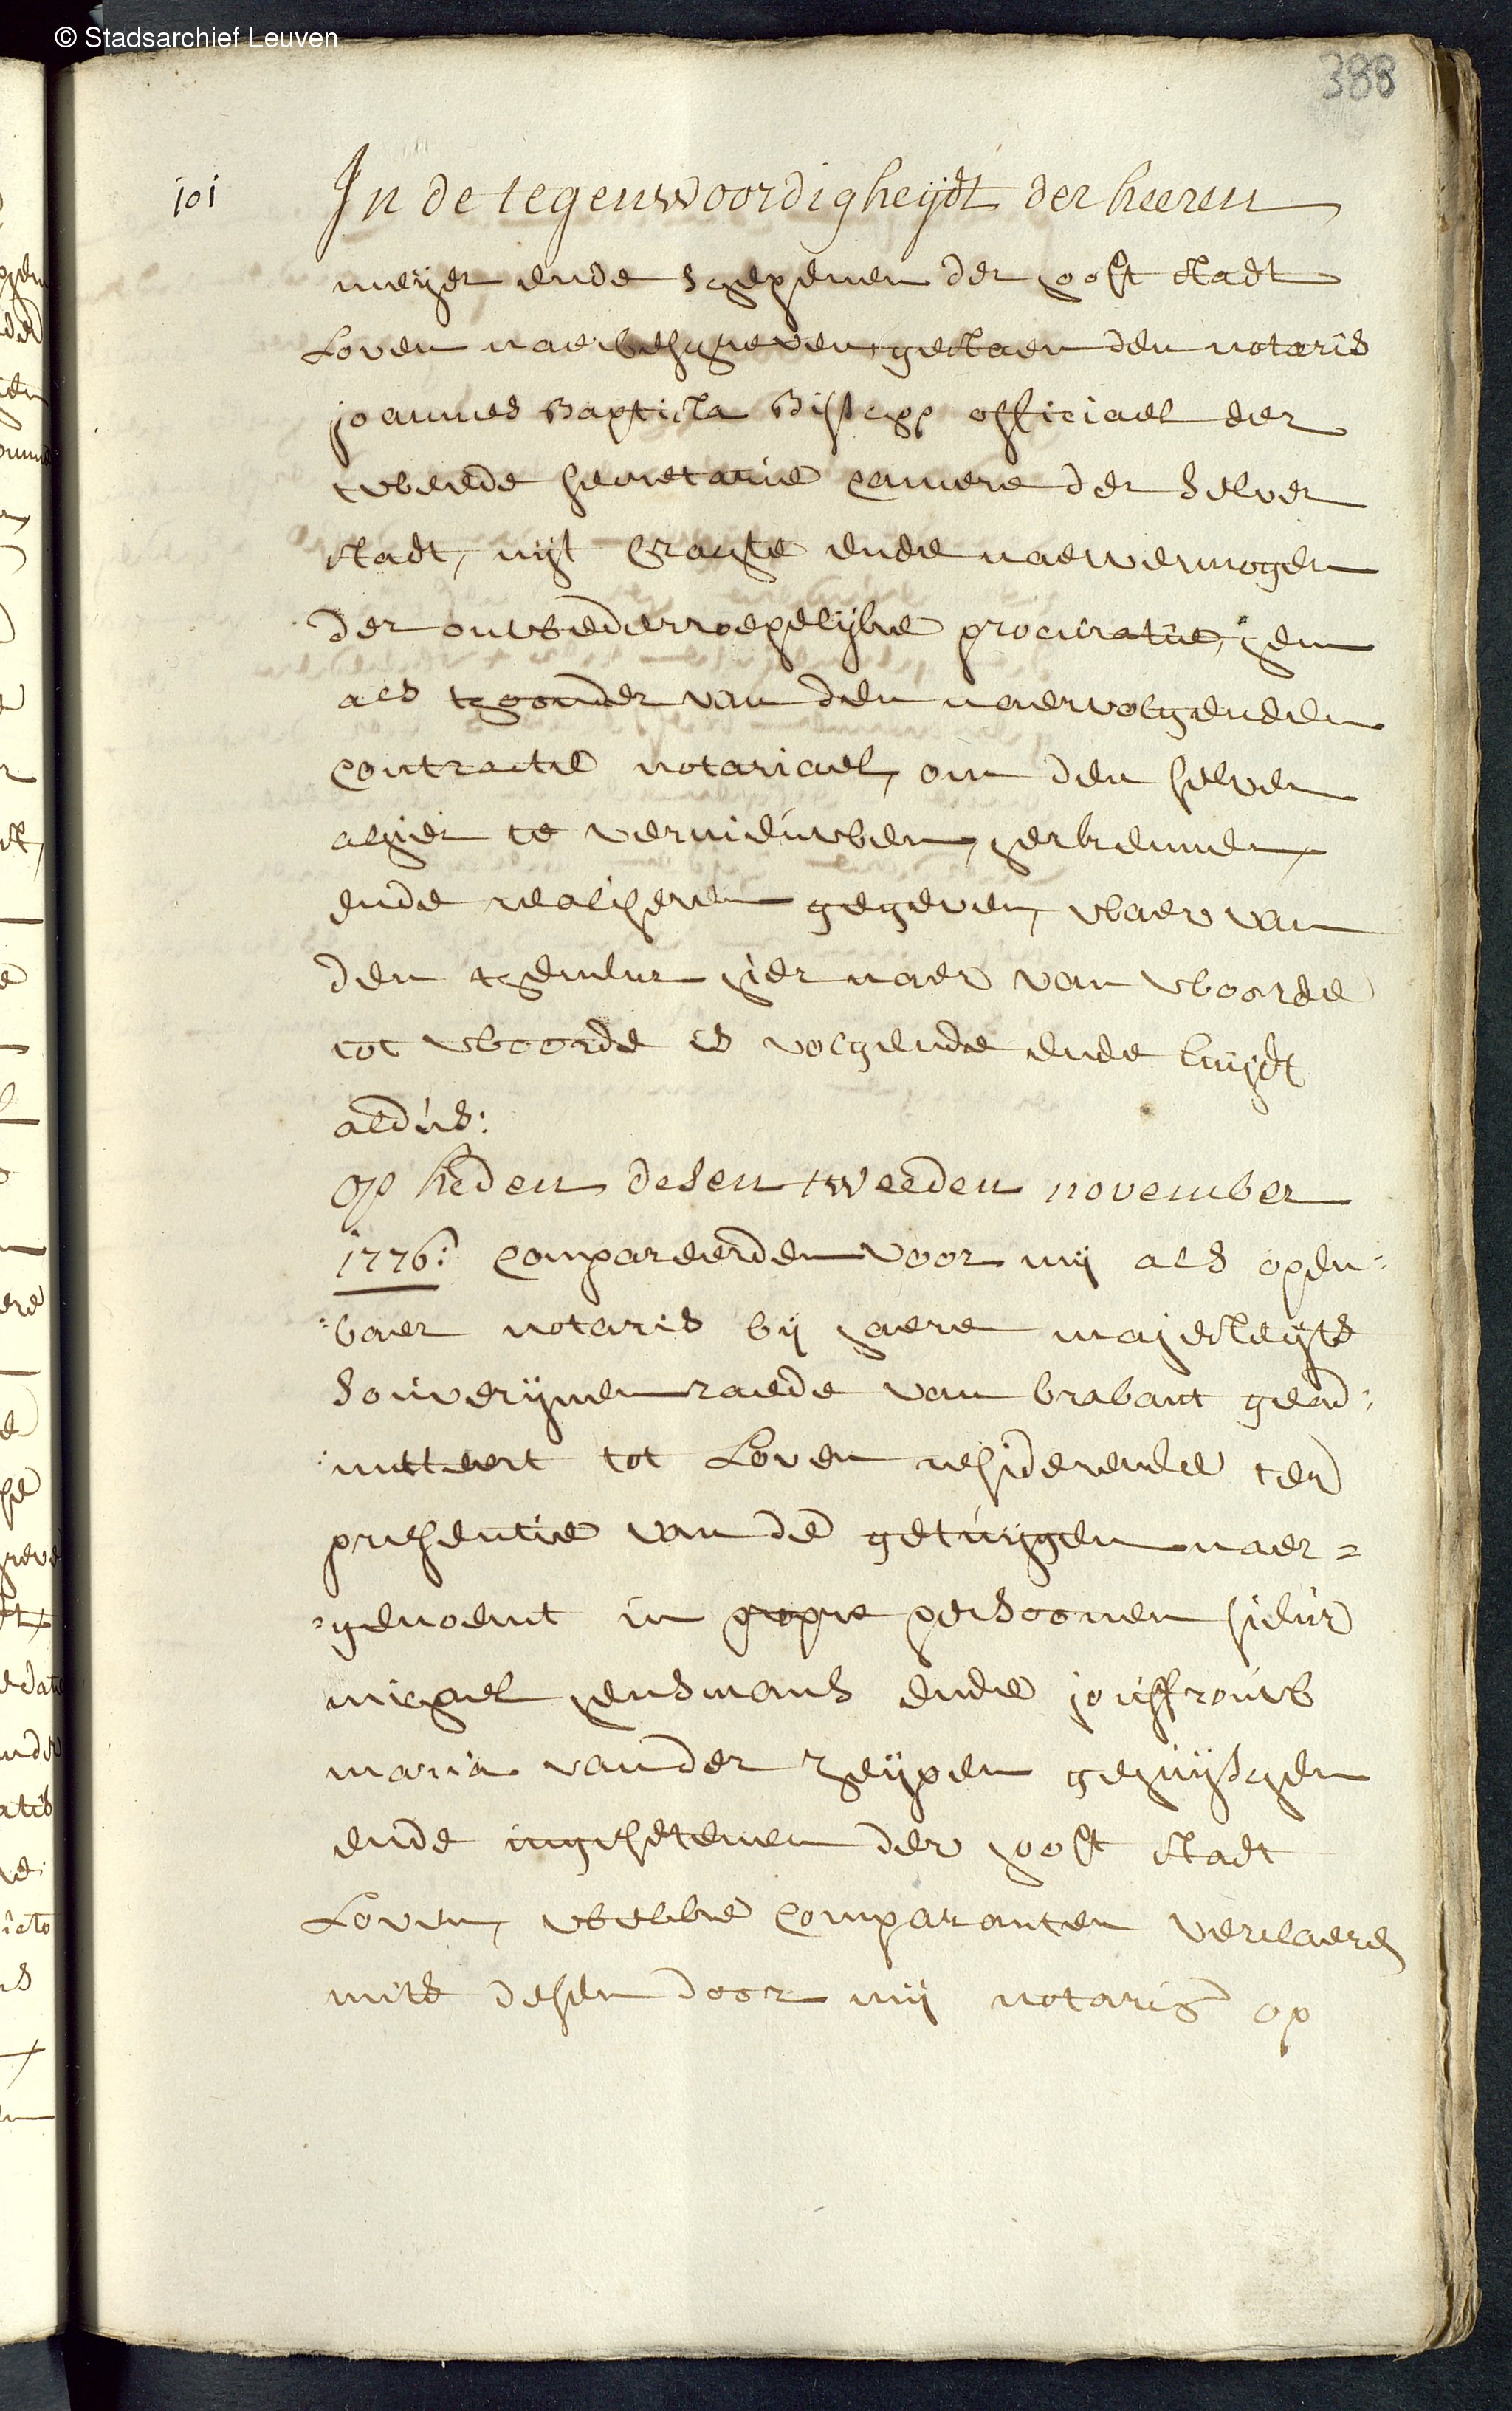 © Stadsarchief Leuven
388
101
In de tegenwoordigheijdt der heeren
meijer ende schepenen der hooft stadt
Loven naerbeschreven, gestaen den notaris
joannes Baptista Bisschop officiael der
tweede secretarie camere der selver
stadt, uijt crachte ende naervermogen
der onwederroepelijcke procuratie, hem
als thoonder van den naervolgenden
contracte notariael, om den selven
alhier te vernieuwen, herkennen,
ende realiseren gegeven, waer van
den theneur hier naer van woorde
tot woorde is volgende ende luijdt
aldus:
Op heden desen tweeden november
1776: compareerden voor mij als open=
=baer notaris bij haere majesteijts
souverijnen raede van brabant gead=
=mitteert tot Loven residerende ter
presentie van de getuijgen naer=
=genoemt in propre persoonen sieur
michael hensmans ende jouffrouw
maria vander Zeijpen gehuijschen
ende ingesetenen der hooft stadt
Loven, welcke comparanten verclaeren
mits desen door mij notaris op